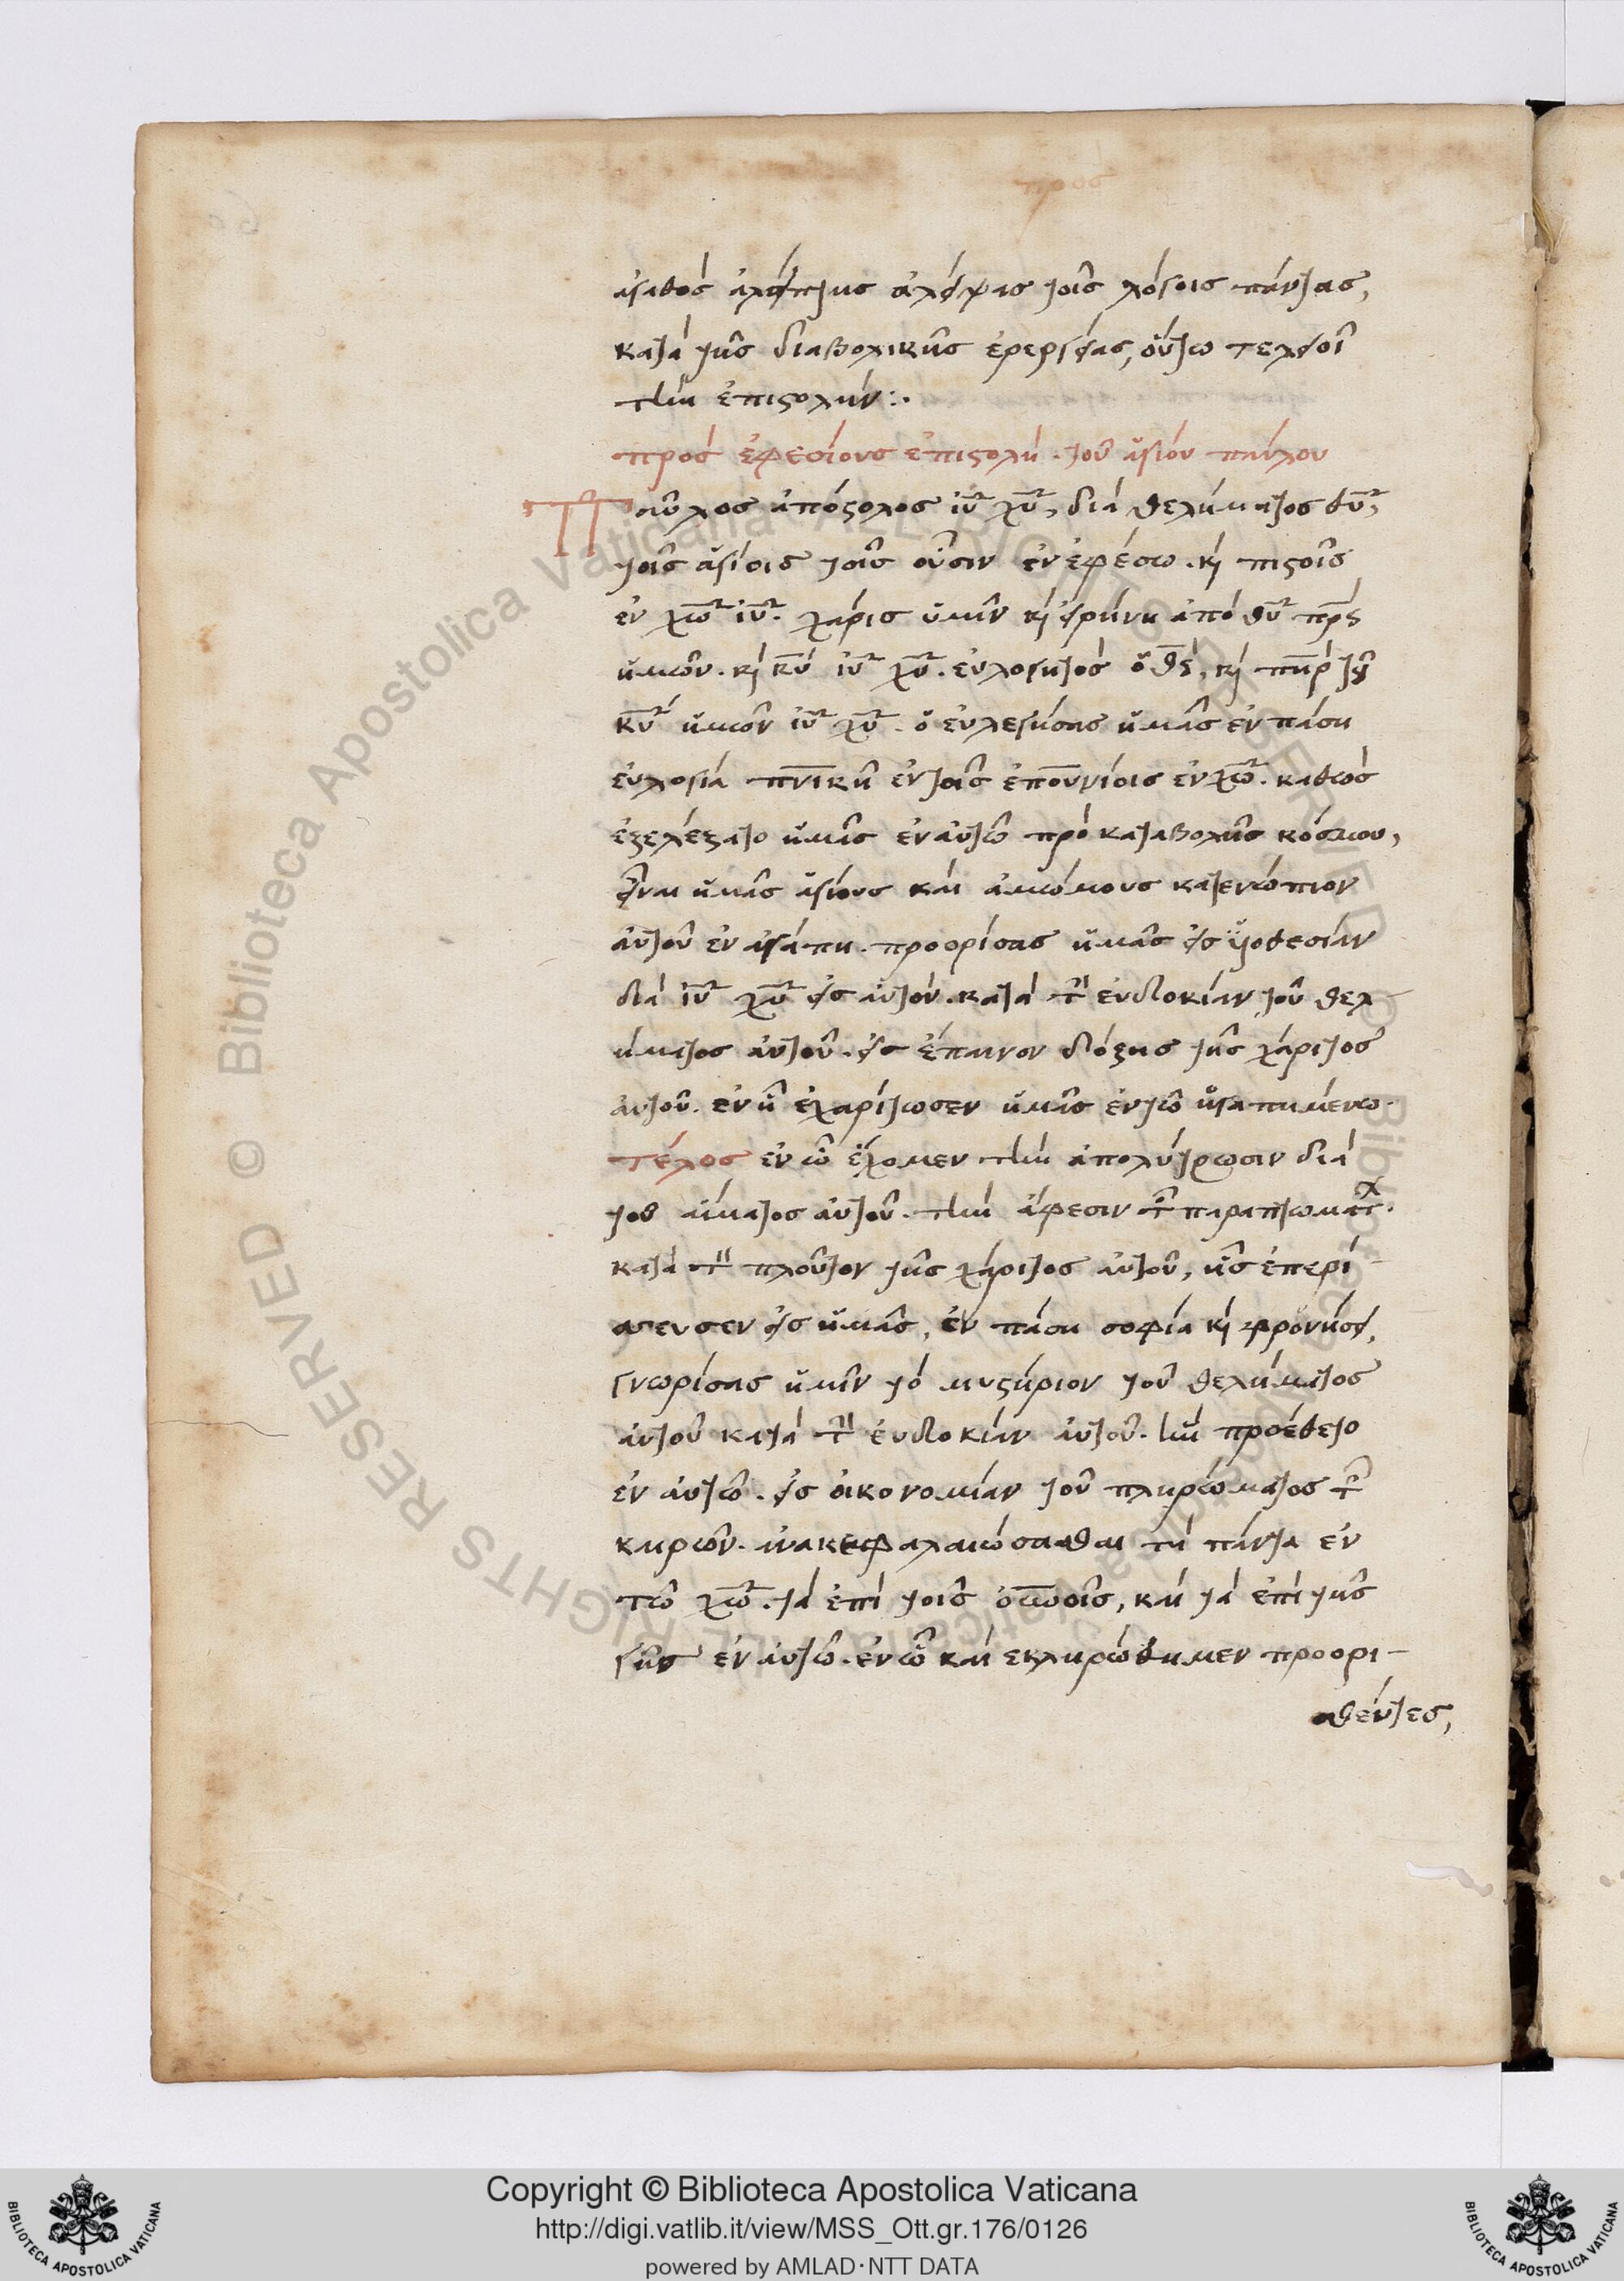 προσ
ἀγαθὸς ἀλείπτης ἀλείψας τοῖς λόγοις πάντας,
κατὰ τῆς διαβολικῆς ἐνεργείας, οὕτω τελειοῖ
τὴν ἐπιστολήν:.
πρὸς ἐφεσίους ἐπιστολὴ. τοῦ ἁγίου παύλου
Παῦλος ἀπόστολος ἰῦ χῦ, διὰ θελήματος θῦ,
τοῖς ἁγίοις τοῖς οὖσιν ἐν ἐφέσω. κὶ πιστοῖς
ἐν χῶ ἰῦ. χάρις ὑμῖν κὶ εἰρήνη ἀπὸ θῦ πρς
ἡμῶν. κὶ κῦ ἰῦ χῦ. εὐλογητὸς ὁ θς, κὶ πηρ τοῦ
κῦ ἡμῶν ἰῦ χῦ. ὁ εὐλογήσας ἡμᾶς ἐν πάση
εὐλογία πνικῆ ἐν τοῖς ἐπουνίοις ἐν χῶ. καθὼς
ἐξελέξατο ἡμᾶς ἐν αὐτῶ πρὸ καταβολῆς κόσμου,
εἶναι ἡμᾶς ἁγίους καὶ ἀμώμους κατενώπιον
αὐτοῦ ἐν ἀγάπη. προορίσας ἡμᾶς εἰς υἱοθεσίαν
διὰ ἰῦ χῦ εἰς αὐτόν. κατὰ τὴν εὐδοκίαν τοῦ θελ
ήματος αὐτοῦ. εἰς ἔπαινον δόξης τῆς χάριτος
αὐτοῦ. ἐν ἧ ἐχαρίτωσεν ἡμᾶς ἐν τῶ ἠγαπημένω.
τέλος ἐν ὧ ἔχομεν τὴν ἀπολύτρωσιν διὰ
τοῦ αἵματος αὐτοῦ. τὴν ἄφεσιν τῶν παραπτωμάτων.
κατὰ τὸν πλοῦτον τῆς χάριτος αὐτοῦ, ἧς ἐπερί-
σσευσεν εἰς ἡμᾶς, ἐν πάση σοφία κὶ φρονήσει,
γνωρίσας ἡμῖν τὸ μυστήριον τοῦ θελήματος
αὐτοῦ κατὰ τὴν εὐδοκίαν αὐτοῦ. ἣν προέθετο
ἐν αὐτῶ. εἰς οἰκονομίαν τοῦ πληρώματος τῶν
καιρῶν. ἀνακεφαλαιώσασθαι τὰ πάντα ἐν
τῶ χῶ. τὰ ἐπὶ τοῖς οὐνοῖς, καὶ τὰ ἐπὶ τῆς
γῆς ἐν αὐτῶ. ἐν ὧ καὶ ἐκληρώθημεν προορι-
σθέντες,
Copyright © Biblioteca Apostolica Vaticana
http://digi.vatlib.it/view/MSS_Ott.gr.176/0126
powered by AMLAD·NTT DATA